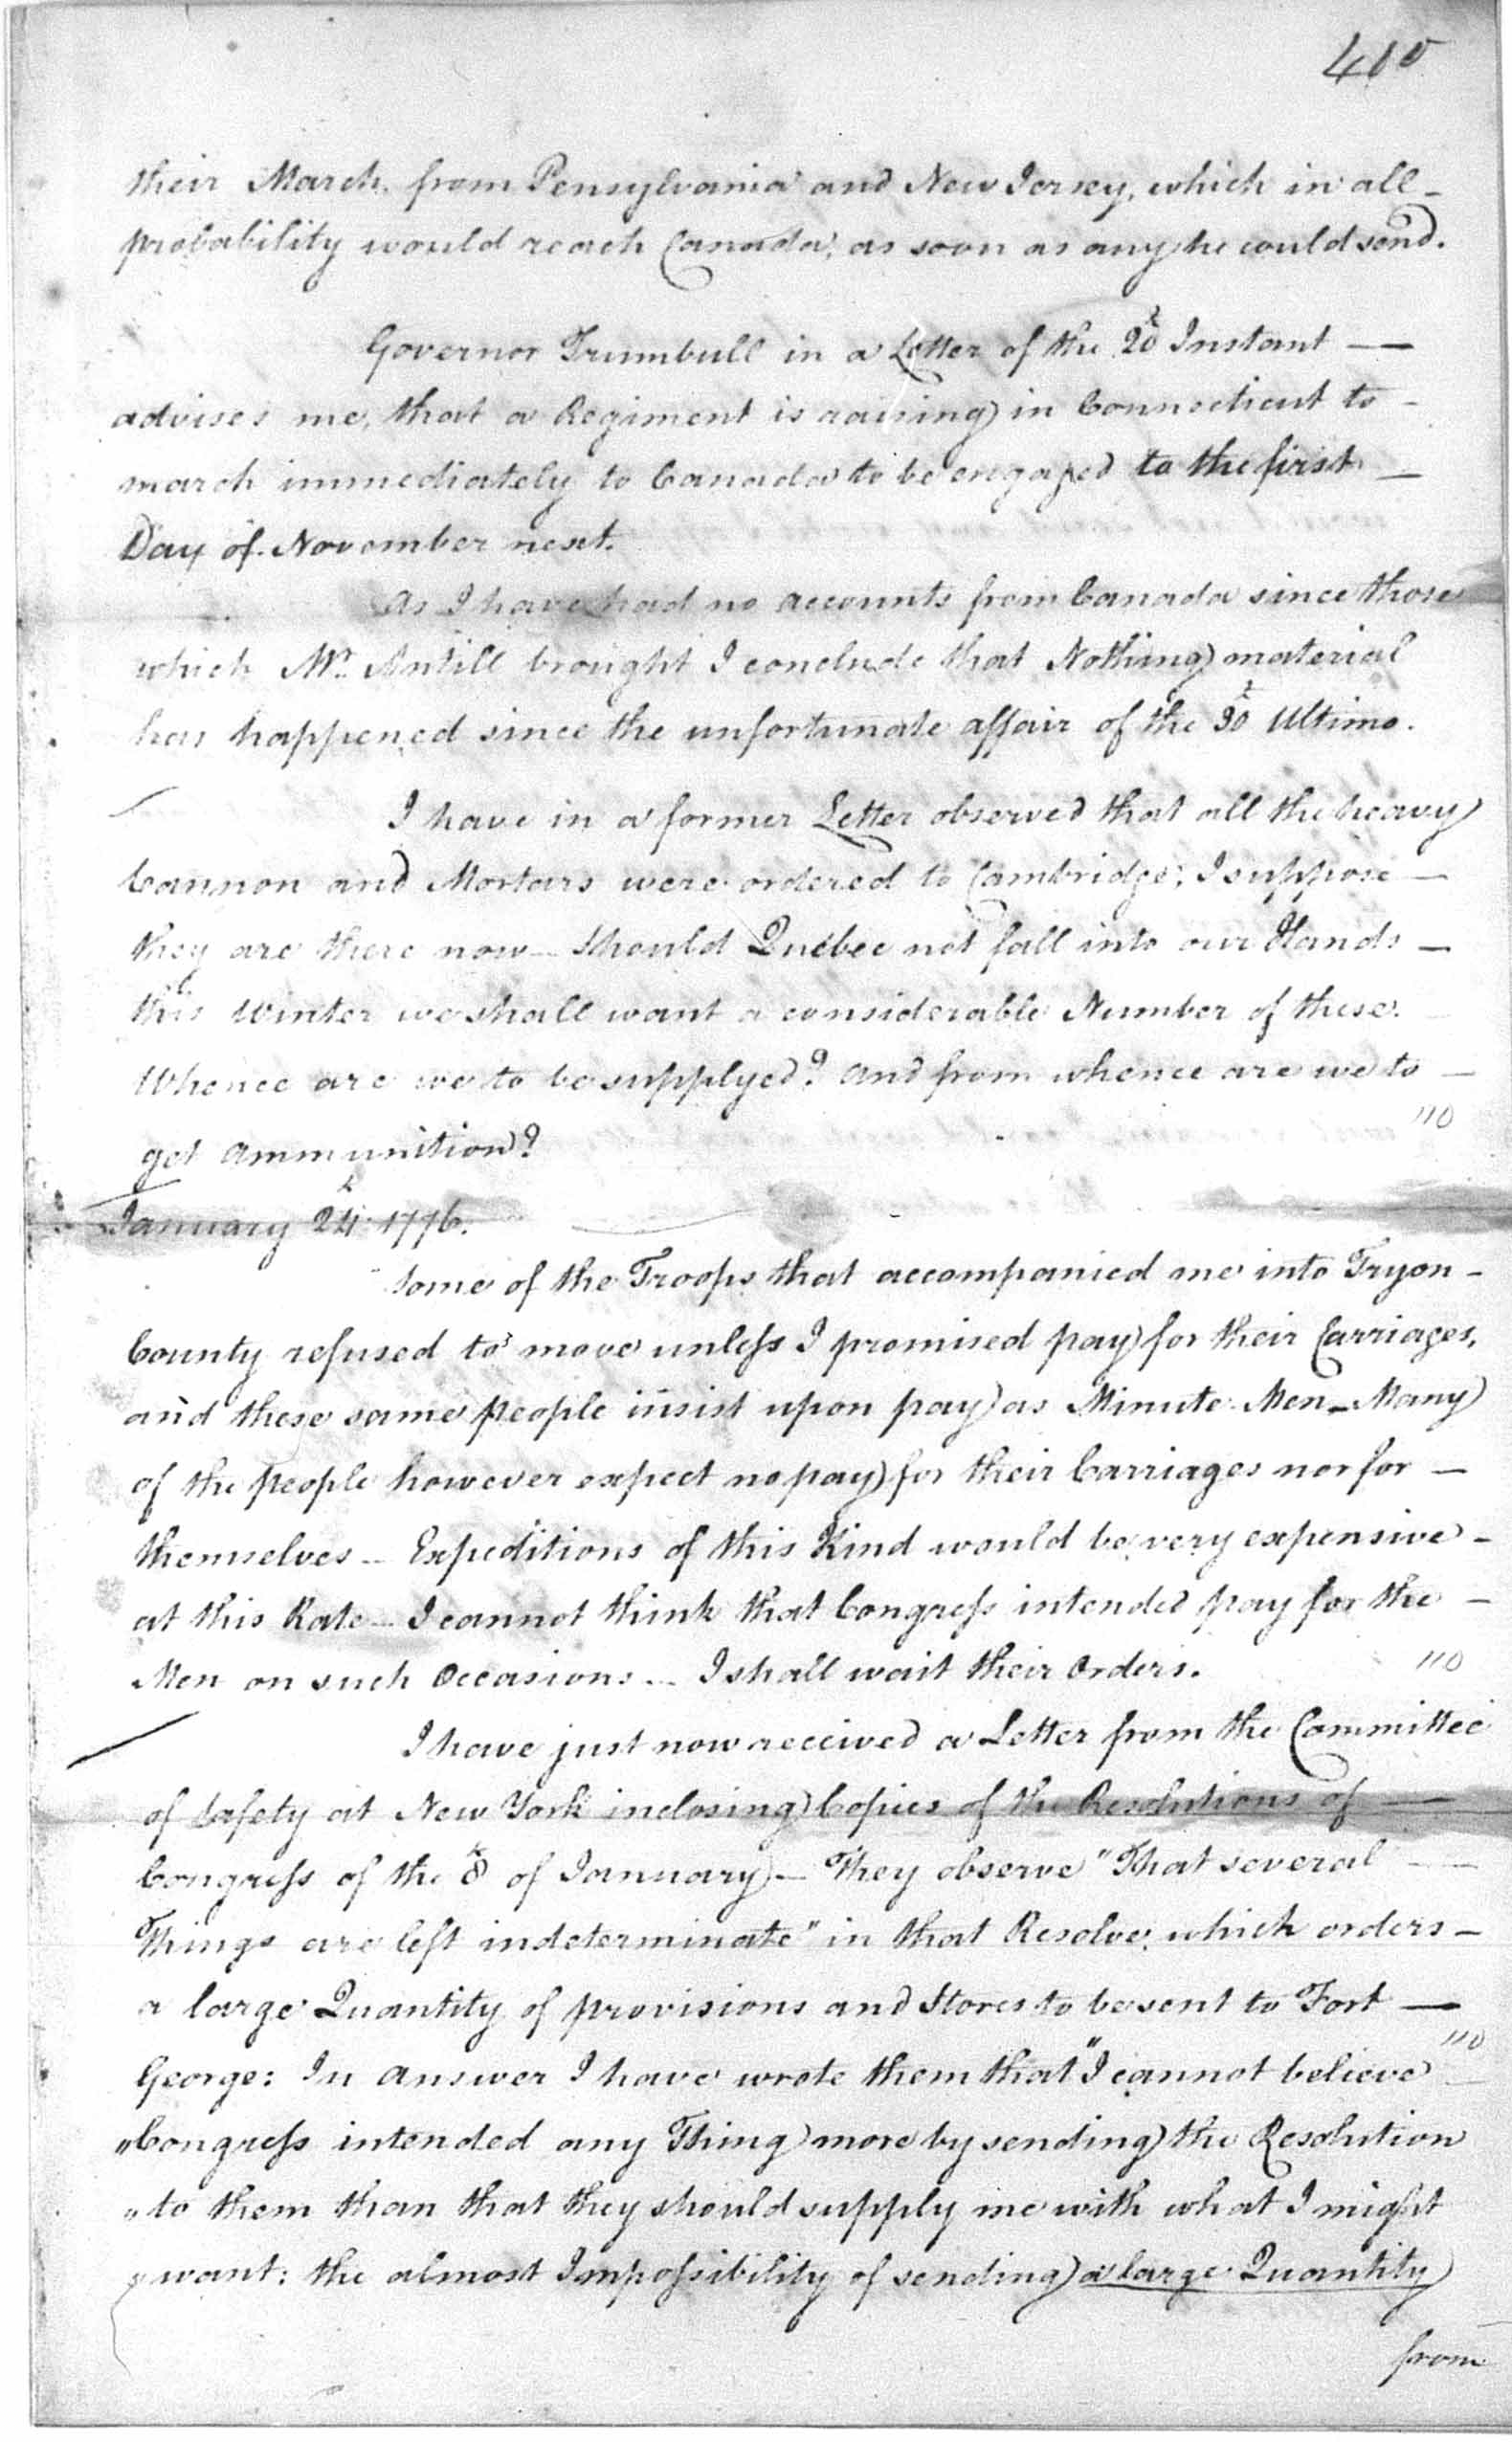 400
their March from Pensylvania and New Jersey, which in all
probability would reach Canada, as soon as any he could send.
Governor Trumbull in a Letter of the 20th Instant —
advises me, that a Regiment is raising in Connecticut to
march immediately to Canada to be engaged to the first
Day of November next.
As I have had no accounts from Canada since those
which Mr. Antill brought I conclude that Nothing material
has happened since the unfortunate affair of the 30th Ultimo.
I have in a former Letter observed that all the heavy
Cannon and Mortars were ordered to Cambridge; I suppose
they are there now — Should Quebec not fall into our Hands
this Winter we shall want a considerable Number of these.
Whence are we to be supplyed? and from whence are we to
get Ammunition?
January 24th 1776.
Some of the Troops that accompanied me into Tryon
County refused to move unless I promised pay for their Carriages,
and these same people insist upon pay as Minute Men — Many
of the people however expect no pay for their Carriages nor for
themselves — Expeditions of this Kind would be very expensive
at this Rate — I cannot think that Congress intended pay for the
Men on such Occasions — I shall wait their Orders.
I have just now received a Letter from the Committee
of Safety at New York inclosing Copies of the Resolutions of
Congress of the 8th of January — They observe "That several
Things are left indeterminate" in that Resolve, which orders
a large Quantity of provisions and Stores to be sent to Fort
George: In answer I have wrote them that "I cannot believe
"Congress intended any Thing more by sending the Resolution
"to them than that they should supply me with what I might
"want: the almost Impossibility of sending a large Quantity
from